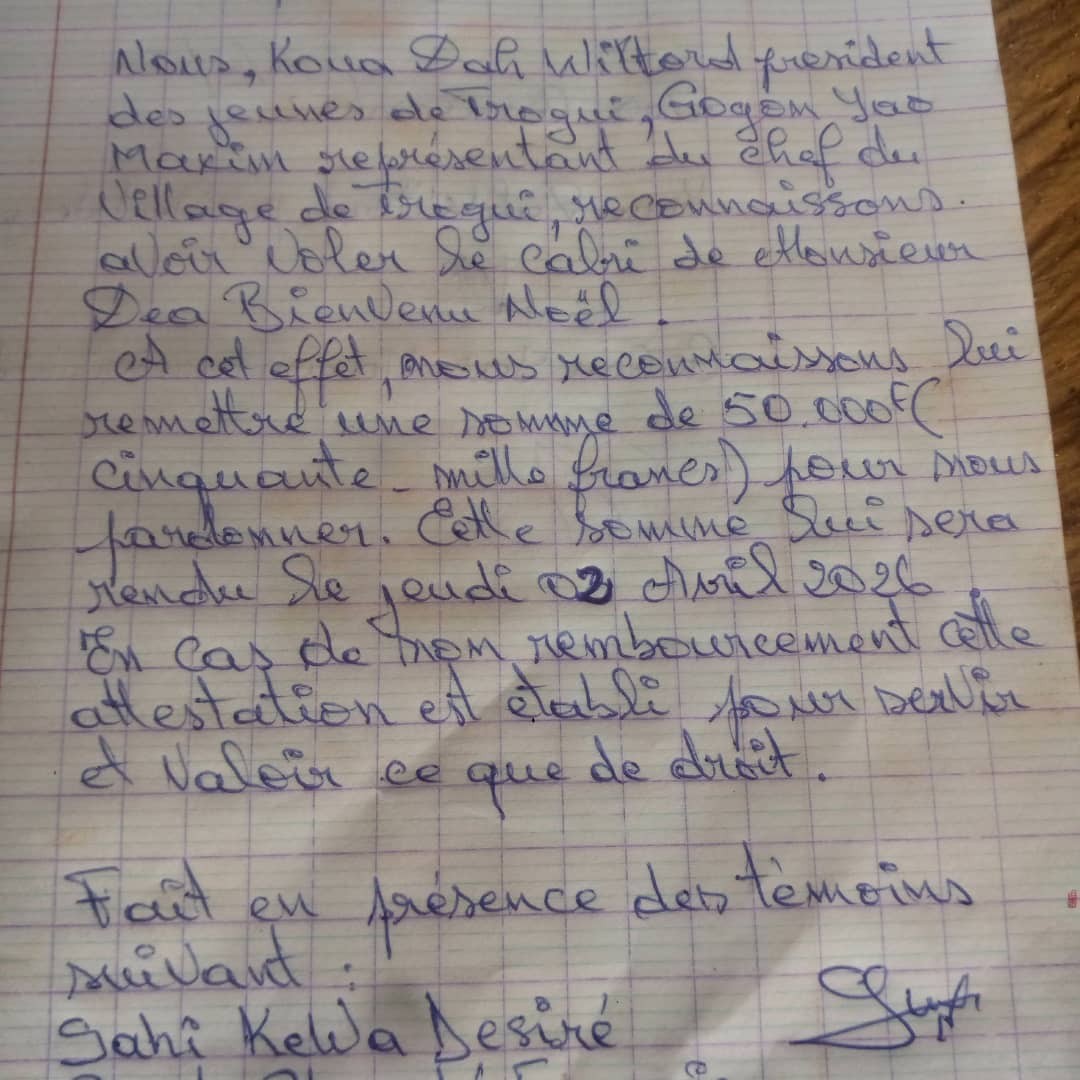 Nous, Koua Dah Wilford président
des jeunes de Trogui, Gogon Yao
Maxim représentant du chef du
Village de Trogui, reconnaissons.
avoir Voler le cabri de Monsieur
Dea Bienvenu Noël.
A cet effet, nous reconnaissons lui
remettre une somme de 50.000F (
cinquante-mille francs) pour nous
pardonner. Cette somme lui sera
rendu le jeudi 02 Avril 2026
En cas de non rembourcement cette
attestation est établi pour servir
et Valoir ce que de droit.
Fait en présence des témoins
suivant :
Gahi KeWa Desiré